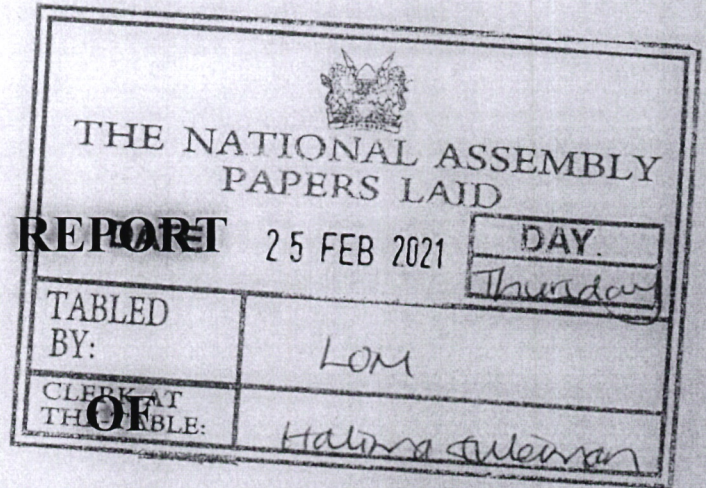 THE NATIONAL ASSEMBLY
PAPERS LAID
REPORT
DATE
25 FEB 2021
DAY.
Thursday
TABLED
BY:
LOM
CLERK AT
THE TABLE:
OF
Halima Suleiman